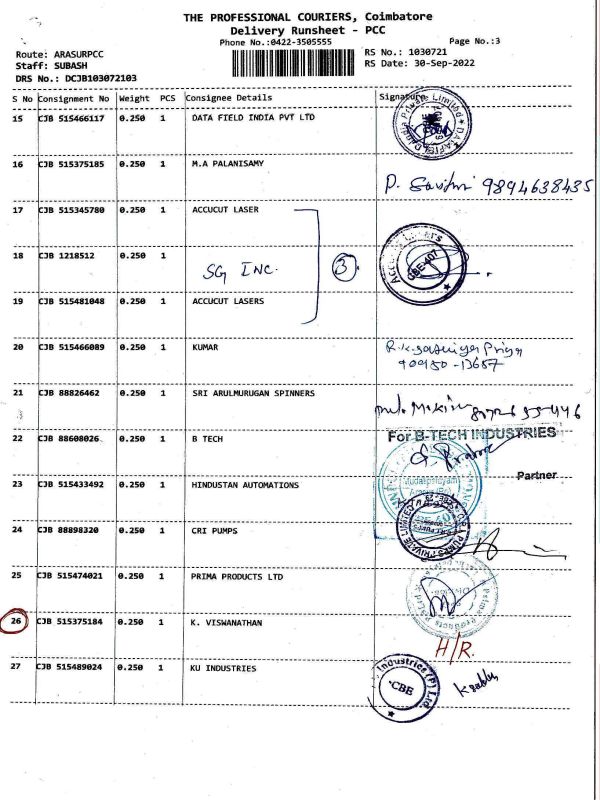 THE PROFESSIONAL COURIERS, Coimbatore
Delivery Runsheet - PCC
Phone No.:0422-3505555
Page No.:3
Route: ARASURPCC
RS No.: 1030721
Staff: SUBASH
RS Date: 30-Sep-2022
DRS No.: DCJB103072103
S No Consignment No Weight PCS Consignee Details Signature
15 CJB 515466117 0.250 1 DATA FIELD INDIA PVT LTD
16 CJB 515375185 0.250 1 M.A PALANISAMY
P. Savitri 9894638435
17 CJB 515345780 0.250 1 ACCUCUT LASER
18 CJB 1218512 0.250 1
SG INC. 3
CBE-407
19 CJB 515481048 0.250 1 ACCUCUT LASERS
20 CJB 515466089 0.250 1 KUMAR
Priya
90950-13657
21 CJB 88826462 0.250 1 SRI ARULMURUGAN SPINNERS
22 CJB 88608026 0.250 1 B TECH
For B-TECH INDUSTRIES
Partner
23 CJB 515433492 0.250 1 HINDUSTAN AUTOMATIONS
24 CJB 88898320 0.250 1 CRI PUMPS
25 CJB 515474021 0.250 1 PRIMA PRODUCTS LTD
26 CJB 515375184 0.250 1 K. VISWANATHAN
H/R.
27 CJB 515489024 0.250 1 KU INDUSTRIES
Industries (P) Ltd.
CBE